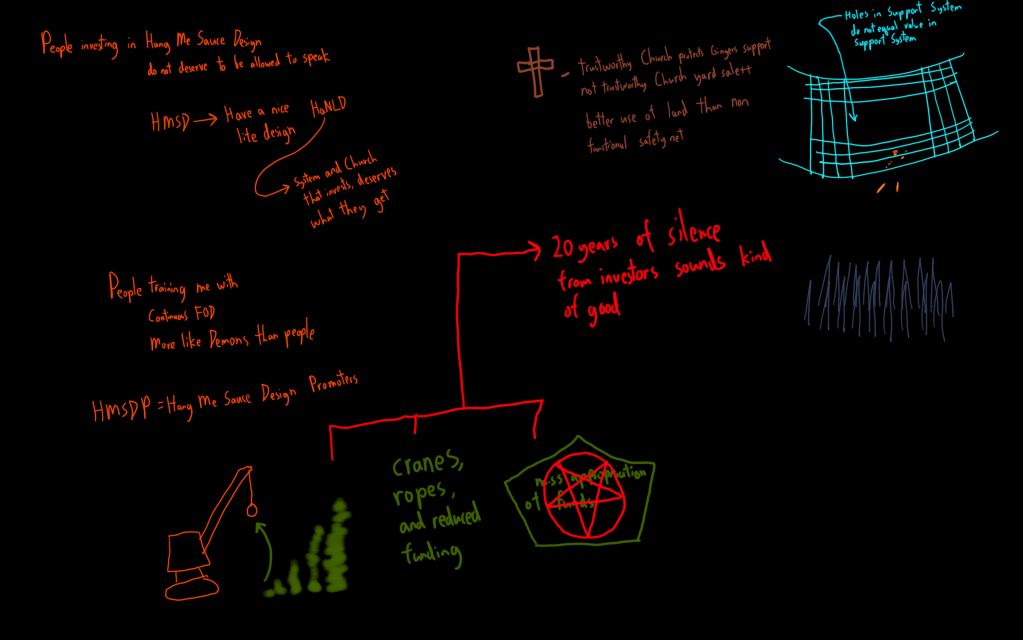 People investing in Hang Me Sauce Design
do not deserve to be allowed to speak
HMSD → Have a nice
life design
HaNLD
System and Church
that invests, deserves
what they get
trustworthy Church protects Gingers support
not trustworthy Church yard
better use of land than non
functional safety net
Holes in Support System
do not equal value in
support System
20 years of silence
from investors sounds kind
of good
People training me with
Continuous FOD
More like Demons than people
HMSDP = Hang Me Sauce Design Promoters
cranes,
ropes,
and reduced
funding
miss appropriation
of funds